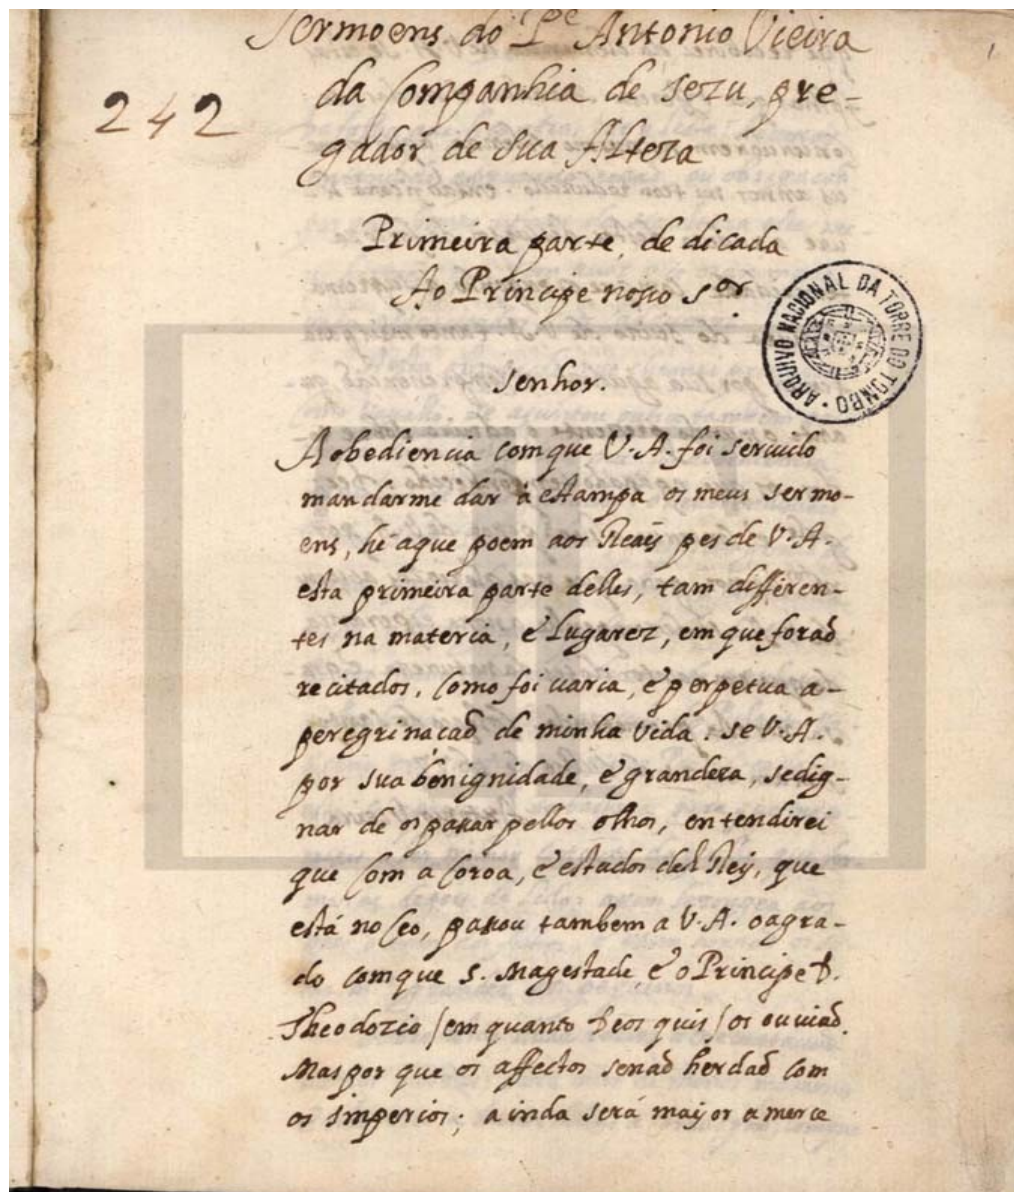 Sermoens do Pe Antonio Vieira
da Companhia de Jezu, pre-
gador de sua Alteza
242
1
Primeira parte, dedicada
Ao Principe nosso Sor
ARQUIVO NACIONAL DA TORRE DO TOMBO
Senhor.
A obediencia com que V.A. foi servido
mandarme dar á estampa os meus sermo-
ens, hé aque poem aos Reais pes de V.A.
esta primeira parte delles, tam differen-
tes na materia, e Lugarez, em que foraõ
recitados, como foi varia, e perpetua a-
peregrinacaõ de minha vida. se V.A.
por sua benignidade, e grandeza, sedig-
nar de os passar pellos olhos, entendirei
que Com a Coroa, e estados del Rey, que
está no Ceo, passou tambem a V.A. oagra-
do comque S. Magestade e o Principe D.
Theodozio (em quanto Deos quis) os ouviaõ.
Mas por que os affectos senaõ herdaõ com
os imperios; ainda será mayor a merce